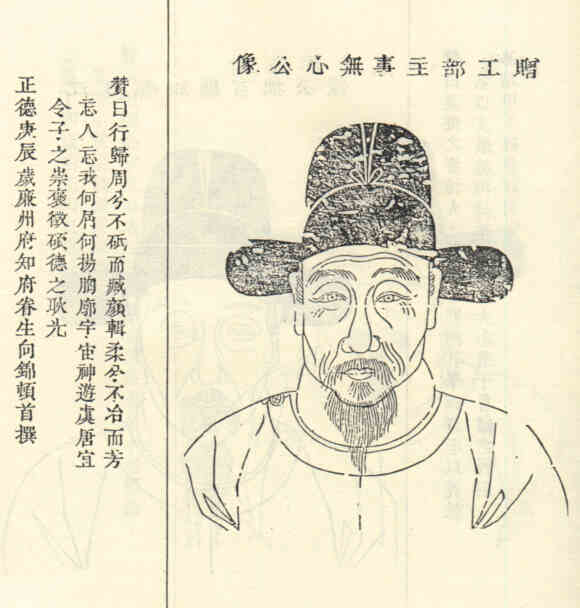 贈工部主事無心公像
贊曰行歸周兮不砥而臧顏輯柔兮不冶而芳
忘人忘我何何揚胸廓宇宙神遊虞唐宜
令子之崇褒徵碩德之耿光
正德庚辰歲廉州府知府眷生向錦頓首撰